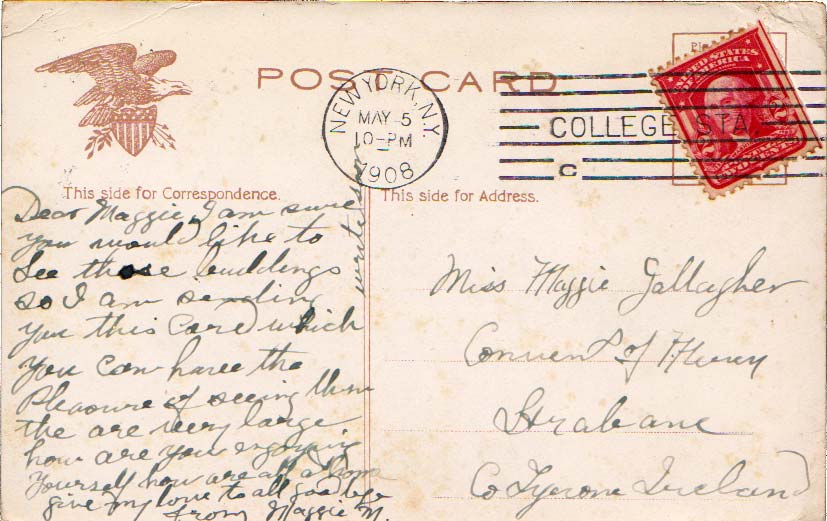 POST CARD
NEW YORK, N.Y.
MAY 5
10-PM
1908
COLLEGE STA.
C
UNITED STATES
OF AMERICA
2
2
TWO CENTS
This side for Correspondence.
This side for Address.
Dear Maggie, I am sure
you would like to
see those buildings
so I am sending
you this Card which
you can have the
Pleasure of seeing them
the are very large
how are you enjoying
Yourself how are all at home
give my love to all good bye
from Maggie M.
write soon
Miss Maggie Gallagher
Convent of Mercy
Strabane
Co Tyrone Ireland